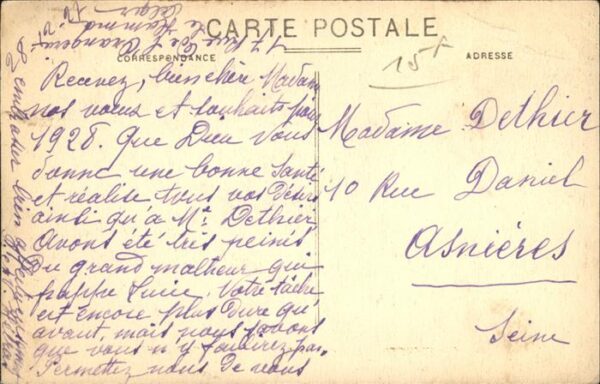 CARTE POSTALE
CORRESPONDANCE
ADRESSE
15 F
17 Rue
Alger
Recevez, bien chère Madame
nos vœux et souhaits pour
1928. que Dieu vous
donne une bonne Santé
et réalise tous vos Désirs
ainsi qu'à Mr. Dethier
Avons été très peinés
Du grand malheur qui
frappe Lucie. Votre tâche
est encore plus Dure qu'
avant, mais nous savons
que vous n'y faillirez pas.
Permettez nous de vous
embrasser bien
Madame Dethier
10 Rue Daniel
Asnières
Seine